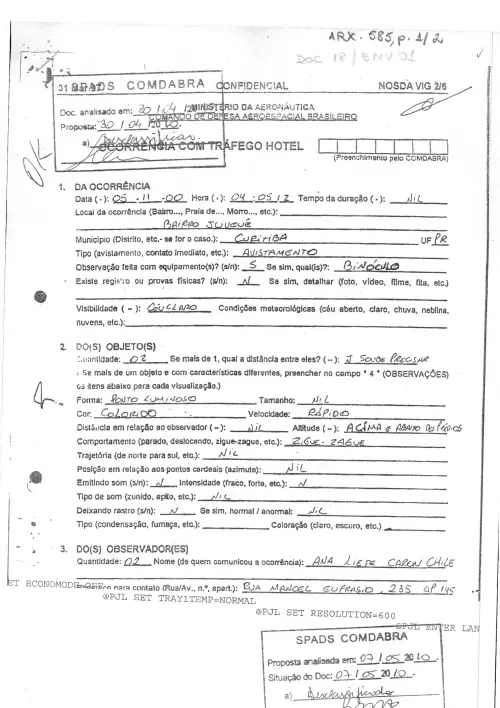 ARX. 585, p. 1/2
DOC 18 / ENV 01
SPADS COMDABRA
31 CONFIDENCIAL NOSDA VIG 2/6
MINISTÉRIO DA AERONÁUTICA
Doc. analisado em: 30 / 04 /
COMANDO DE DEFESA AEROESPACIAL BRASILEIRO
Proposta: 30 / 04 / 2010.
a) Desclassificar
OK
OCORRÊNCIA COM TRÁFEGO HOTEL
(Preenchimento pelo COMDABRA)
1. DA OCORRÊNCIA
Data (-): 05 . 11 .00 Hora (-): 04 :05 / Z Tempo da duração (-): NIL
Local da ocorrência (Bairro..., Praia de..., Morro..., etc.):
BAIRRO JUVEVÊ
Município (Distrito, etc.- se for o caso.): CURITIBA UF PR
Tipo (avistamento, contato imediato, etc.): AVISTAMENTO
Observação feita com equipamento(s)? (s/n): S Se sim, qual(is)?: BINÓCULO
Existe registro ou provas físicas? (s/n): N Se sim, detalhar (foto, vídeo, filme, fita, etc.)
Visibilidade ( – ): CÉU CLARO Condições meteorológicas (céu aberto, claro, chuva, neblina,
nuvens, etc.):
2. DO(S) OBJETO(S)
Quantidade: 02 Se mais de 1, qual a distância entre eles? ( – ): Ñ SOUBE PRECISAR
Se mais de um objeto e com características diferentes, preencher no campo " 4 " (OBSERVAÇÕES)
os itens abaixo para cada visualização.)
Forma: PONTO LUMINOSO Tamanho: NIL
Cor: COLORIDO Velocidade: RÁPIDO
Distância em relação ao observador ( – ): NIL Altitude ( – ): ACIMA E ABAIXO DOS PRÉDIOS
Comportamento (parado, deslocando, zigue-zague, etc.): ZIGUE-ZAGUE
Trajetória (de norte para sul, etc.): NIL
Posição em relação aos pontos cardeais (azimute): NIL
Emitindo som (s/n): N Intensidade (fraco, forte, etc.): N
Tipo de som (zunido, apito, etc.): NIL
Deixando rastro (s/n): N Se sim, normal / anormal: NIL
Tipo (condensação, fumaça, etc.): Coloração (claro, escuro, etc.)
3. DO(S) OBSERVADOR(ES)
Quantidade: 02 Nome (de quem comunicou a ocorrência): ANA LIETE CARON CHILE
para contato (Rua/Av., n.º, apart.): RUA MANOEL EUFRASIO, 235 AP 145
ET ECONOMODE=OFF
@PJL SET TRAY1TEMP=NORMAL
@PJL SET RESOLUTION=600
@PJL ENTER LAN
SPADS COMDABRA
Proposta analisada em: 07 / 05 2010.
Situação do Doc: 07 / 05 2010.
a) Desclassificado